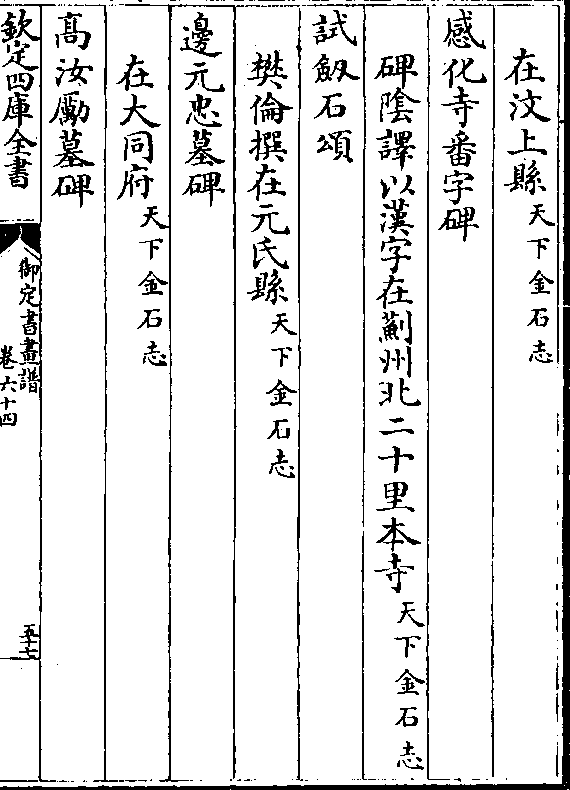 在汶上縣天下金石志
感化寺番字碑
碑陰譯以漢字在薊州北二十里本寺天下金石志
試劔石頌
樊倫撰在元氏縣天下金石志
邊元忠墓碑
在大同府天下金石志
高汝勵墓碑
欽定四庫全書
御定書畫譜
卷六十四
五十七